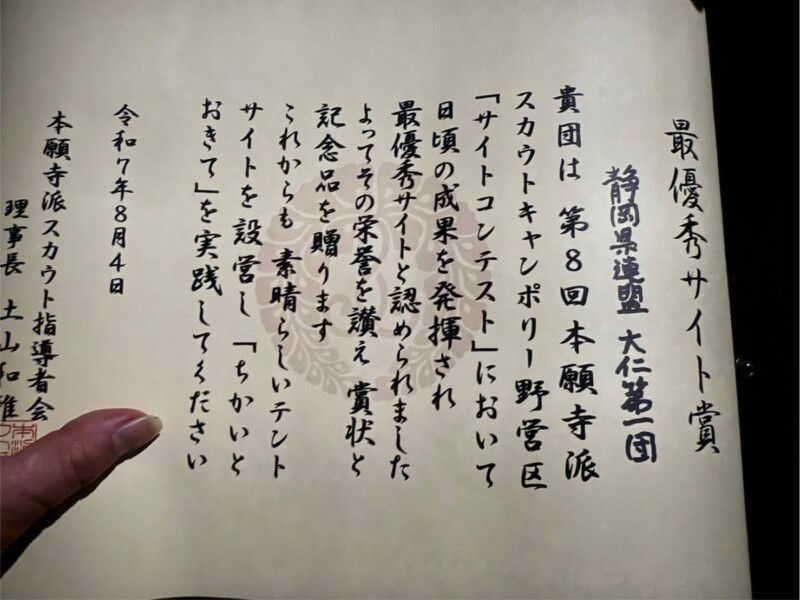 最優秀サイト賞
静岡県連盟 大仁第一団
貴団は 第8回本願寺派
スカウトキャンポリー野営区
「サイトコンテスト」において
日頃の成果を発揮され
最優秀サイトと認められました
よってその栄誉を讃え 賞状と
記念品を贈ります
これからも 素晴らしいテント
サイトを設営し「ちかいと
おきて」を実践してください
令和7年8月4日
本願寺派スカウト指導者会
理事長 土山和雅